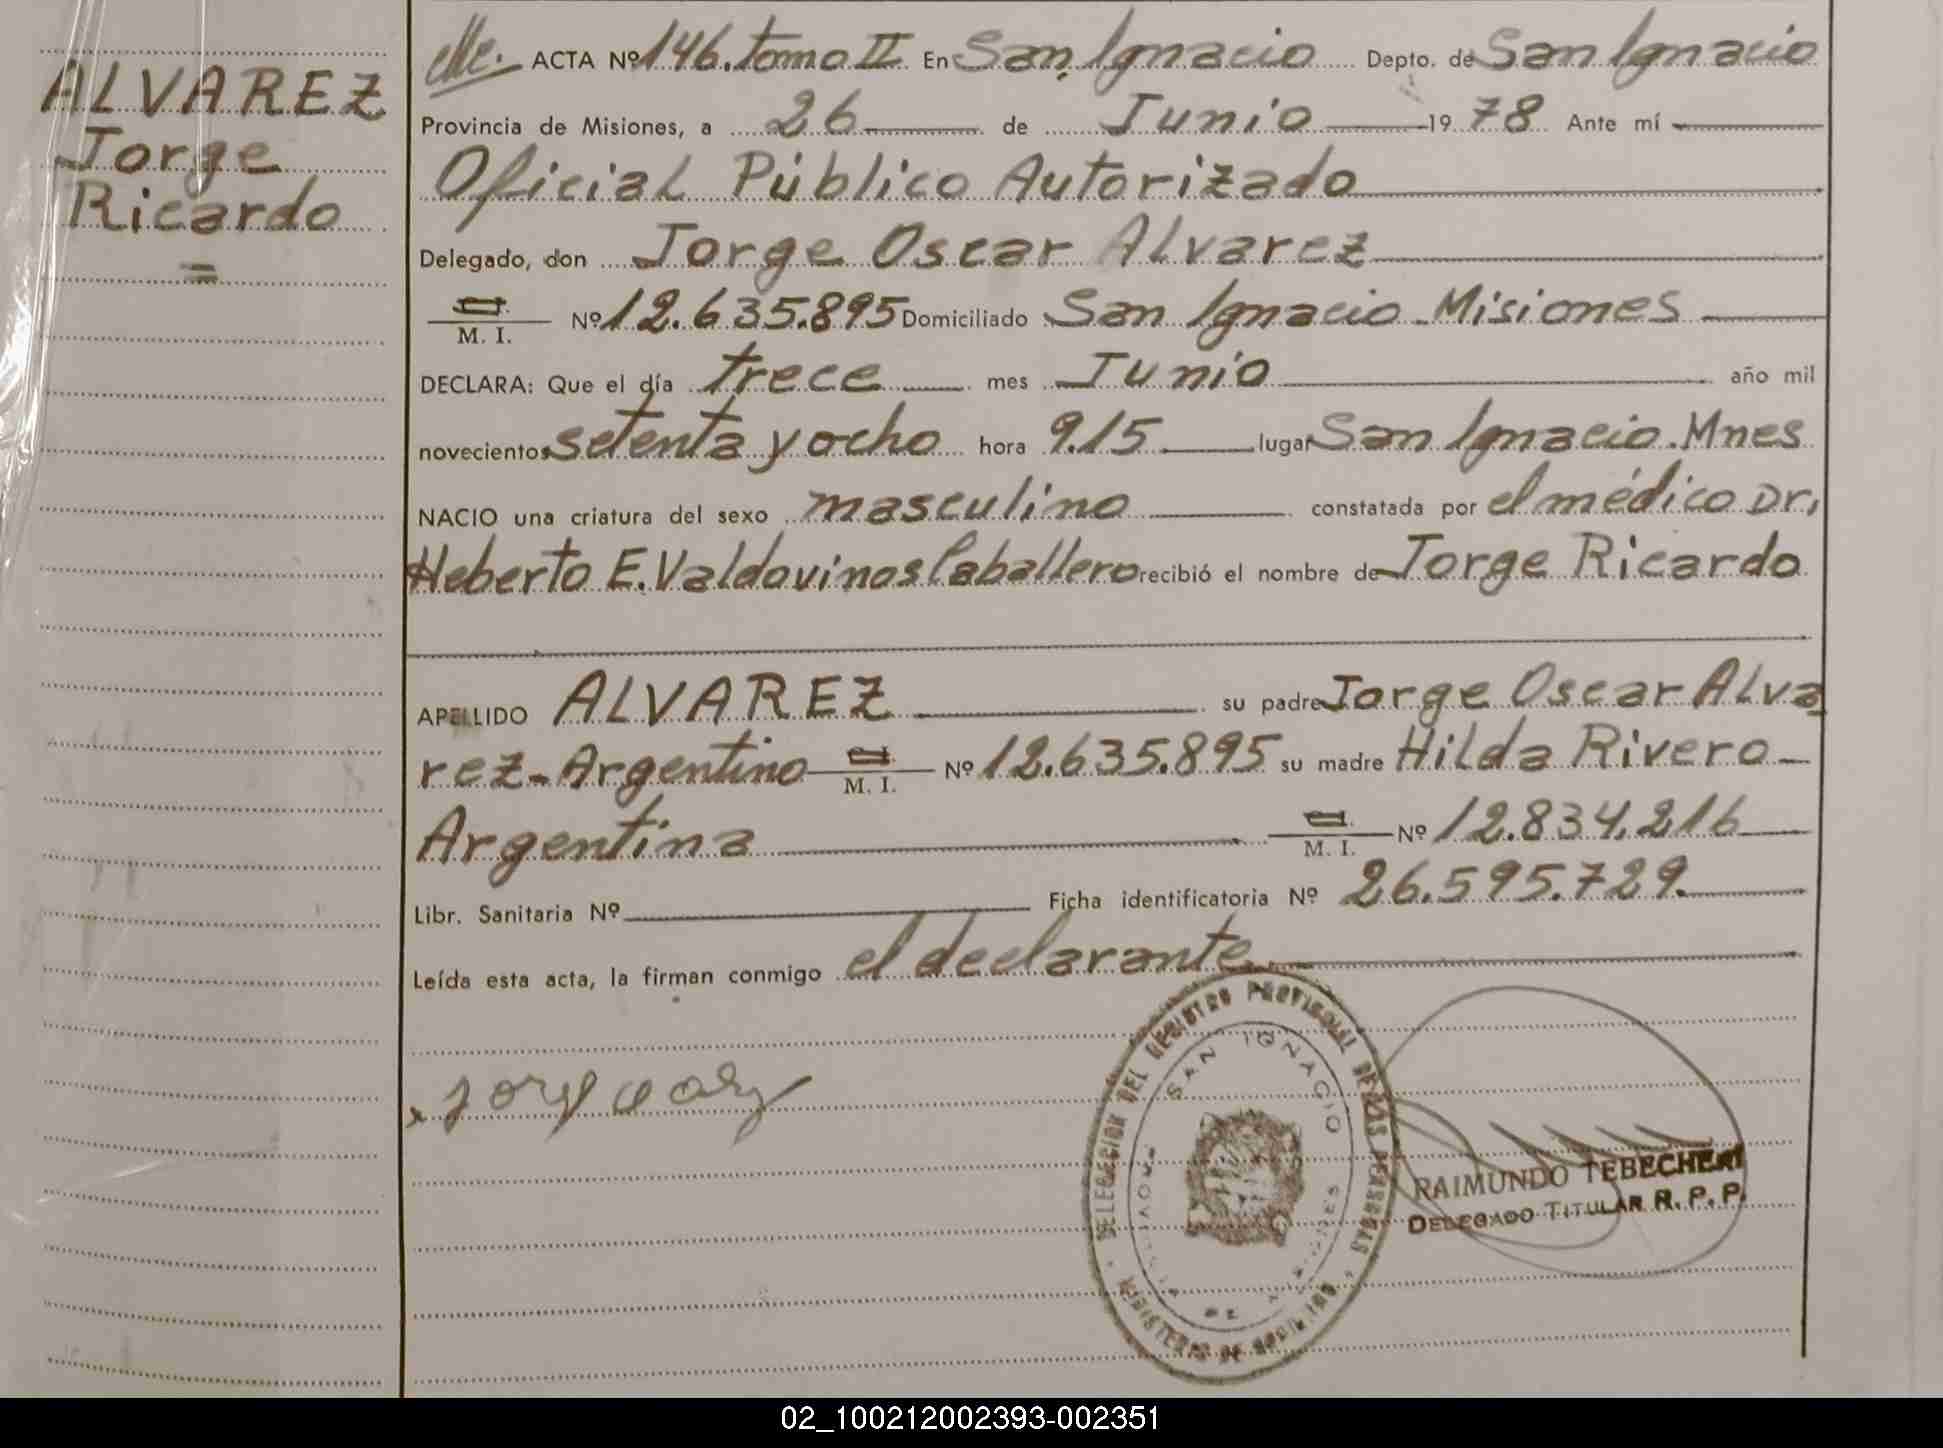 ALVAREZ
Jorge
Ricardo
=
ACTA Nº 146. tomo II En San Ignacio Depto. de San Ignacio
Provincia de Misiones, a 26 de Junio 1978 Ante mí
Oficial Público Autorizado
Delegado, don Jorge Oscar Alvarez
M. I. Nº 12.635.895 Domiciliado San Ignacio - Misiones
DECLARA: Que el día trece mes Junio año mil
novecientos setenta y ocho hora 9.15 lugar San Ignacio. Mnes
NACIO una criatura del sexo masculino constatada por el médico Dr.
Heberto E. Valdovinos Caballero recibió el nombre de Jorge Ricardo
APELLIDO ALVAREZ su padre Jorge Oscar Alva
rez - Argentino M. I. Nº 12.635.895 su madre Hilda Rivero -
Argentina M. I. Nº 12.834.216
Libr. Sanitaria Nº Ficha identificatoria Nº 26.595.729.
Leída esta acta, la firman conmigo el declarante
DELEGACION DEL REGISTRO PROVINCIAL DE LAS PERSONAS
SAN IGNACIO
MISIONES
MINISTERIO DE GOBIERNO
RAIMUNDO TEBECHERI
DELEGADO TITULAR R. P. P.
02_100212002393-002351